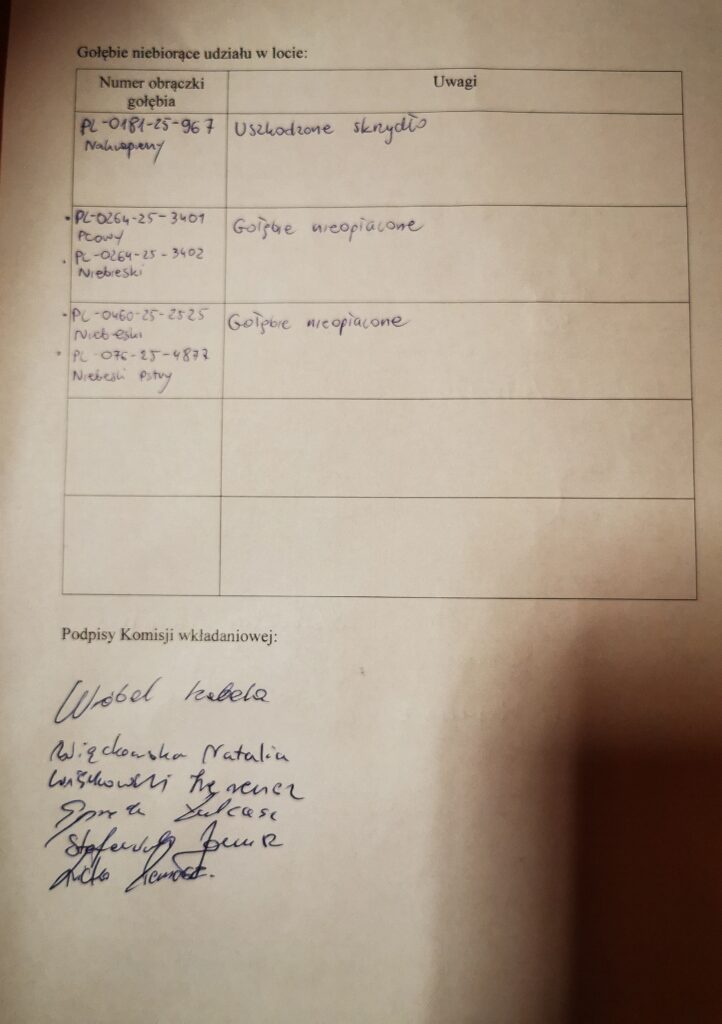 Gołębie niebiorące udziału w locie:
Numer obrączki gołębia
Uwagi
PL-0181-25-967
Nakrapiany
Uszkodzone skrzydło
PL-0264-25-3401
Płowy
PL-0264-25-3402
Niebieski
Gołębie nieopłacone
PL-0460-25-2525
Niebieski
PL-076-25-4877
Niebieski Pstry
Gołębie nieopłacone
Podpisy Komisji wkładaniowej:
Wróbel Izabela
Więckowska Natalia